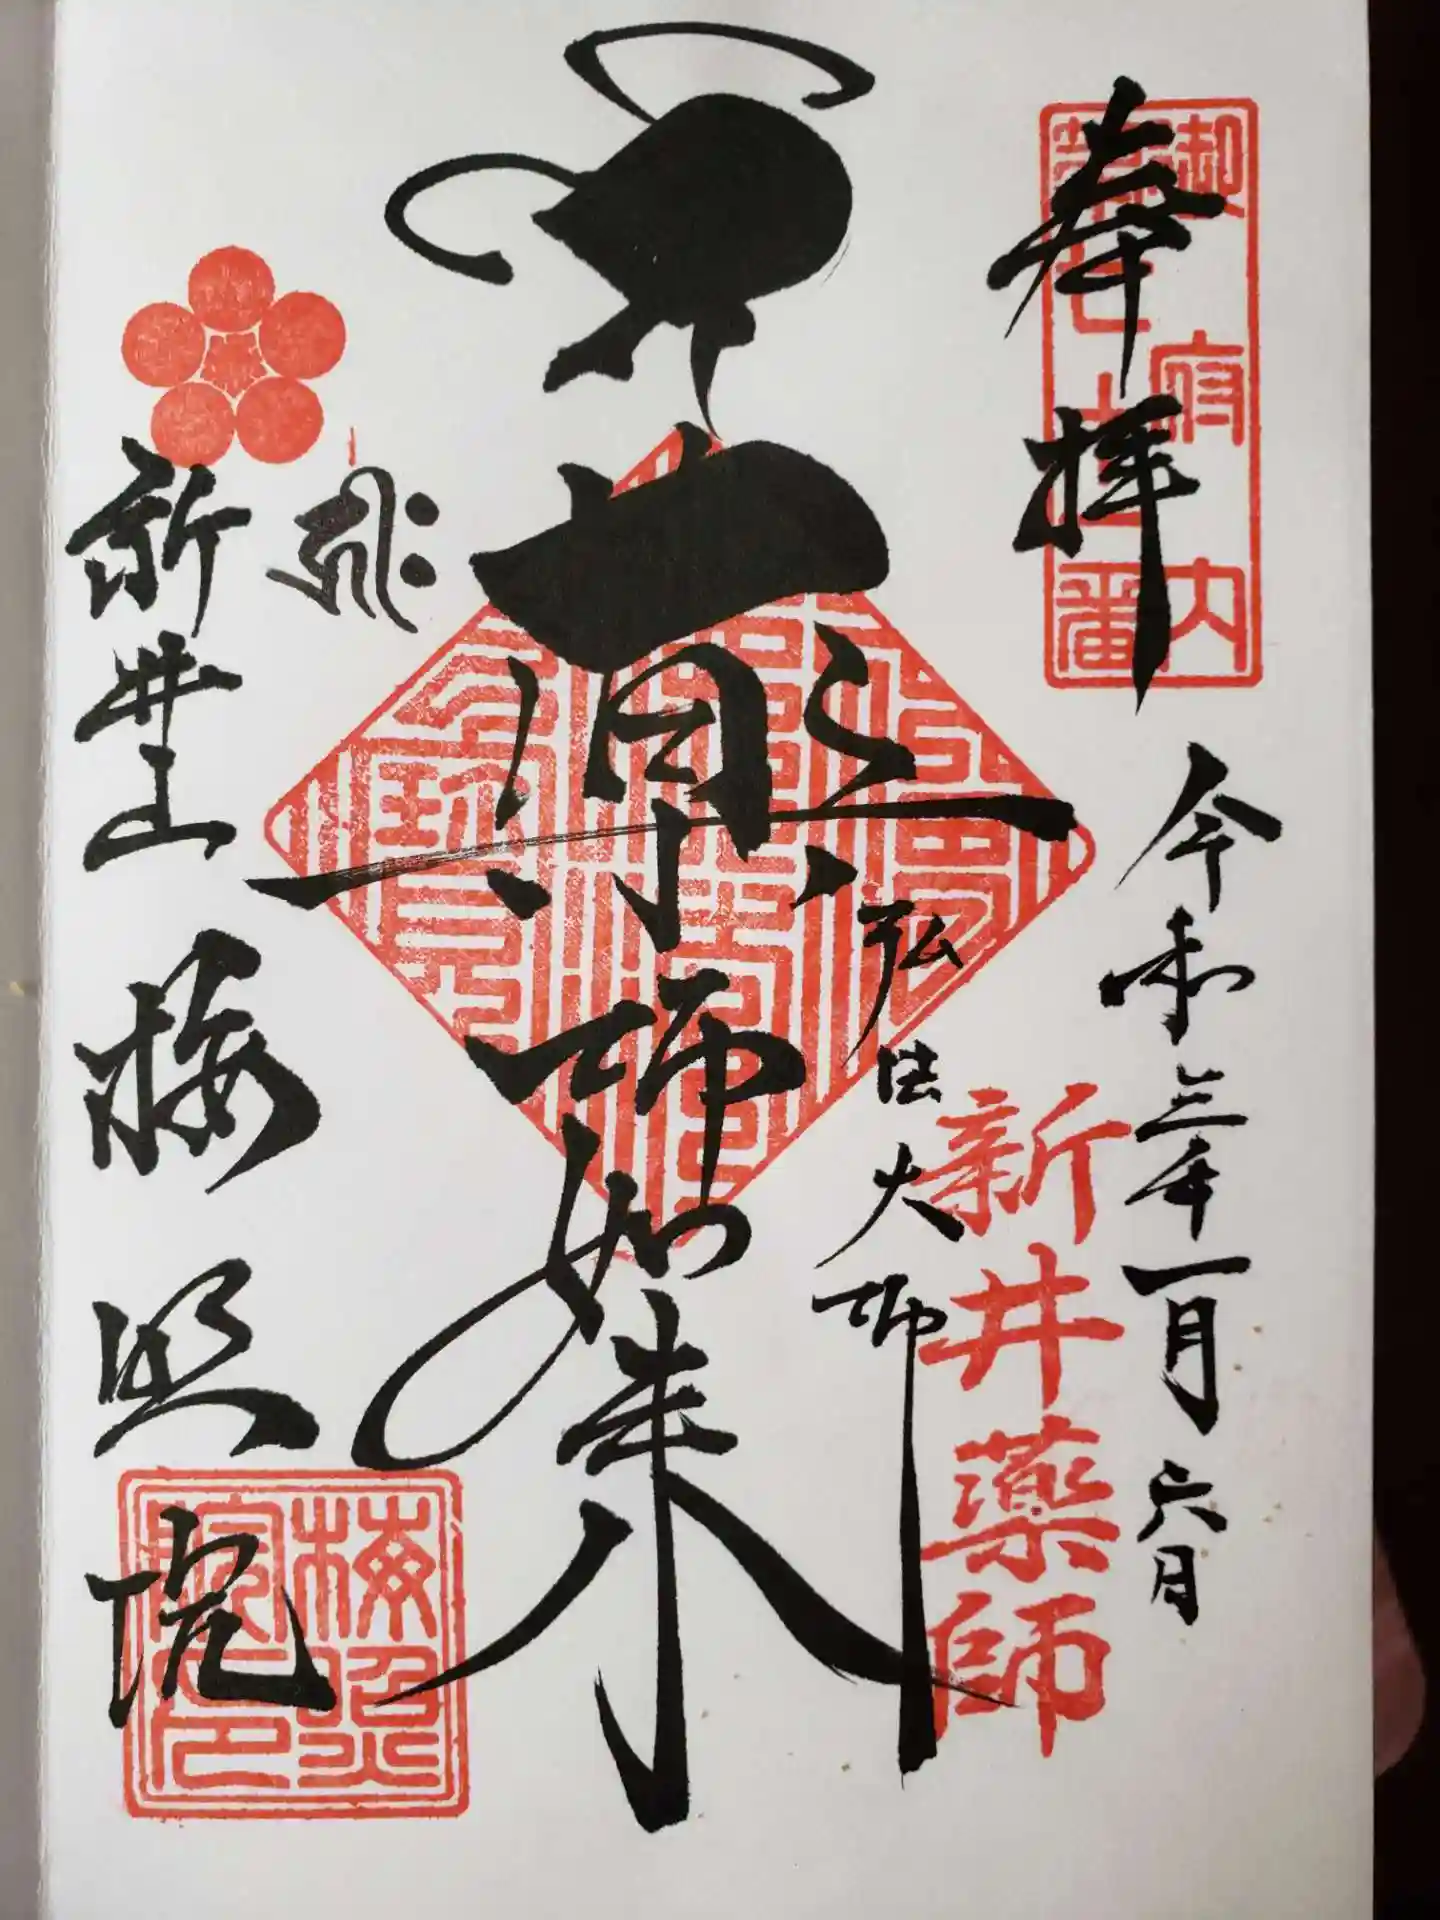 奉拝
御府内
第七十一番
令和三年一月六日
新井薬師
弘法大師
薬師如来
新井山
梅照院
梅照院印